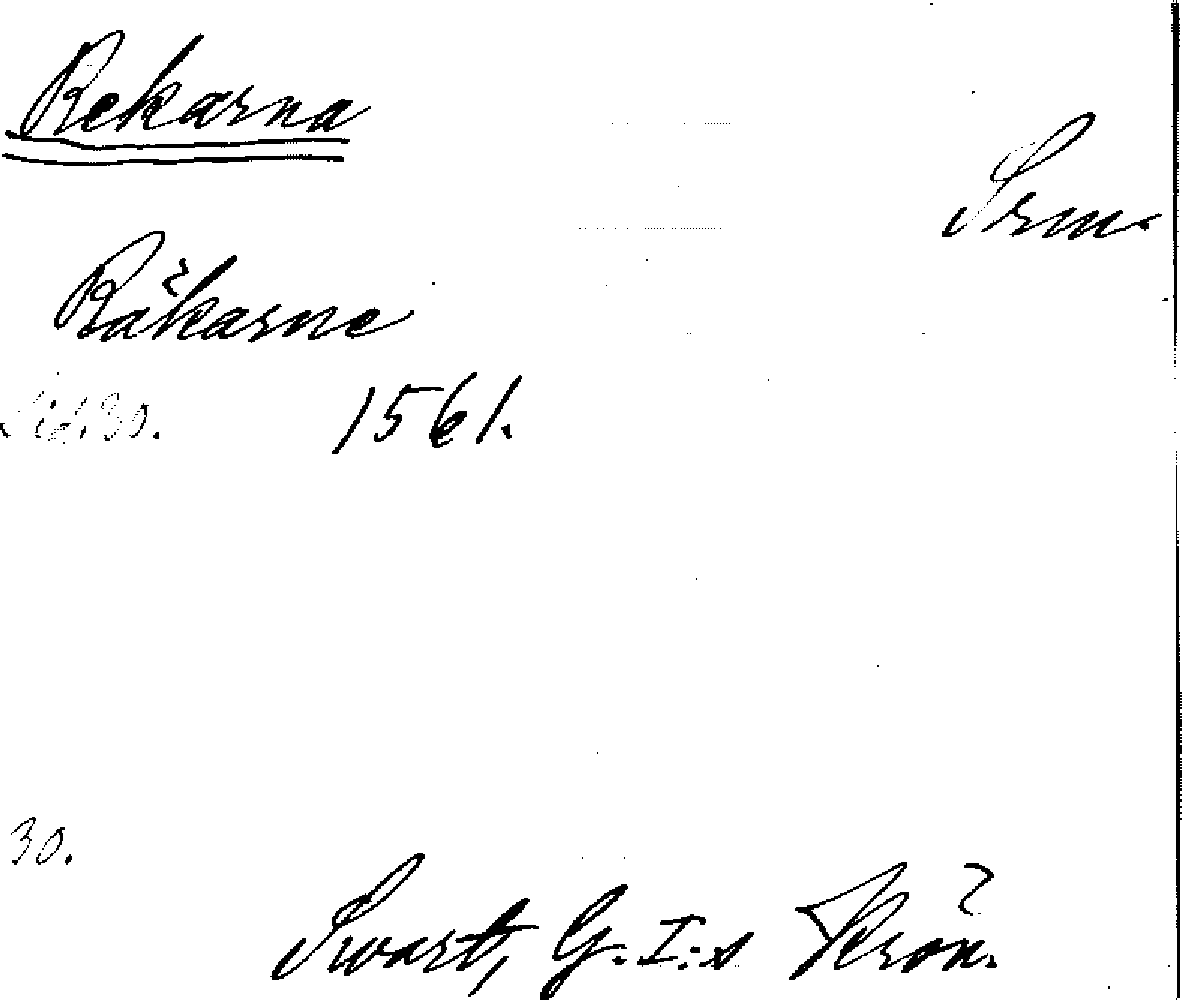 Rekarna
Srm.
Räkarne
Sid. 30.
1561.
30.
Swart, G. I:s Krön.